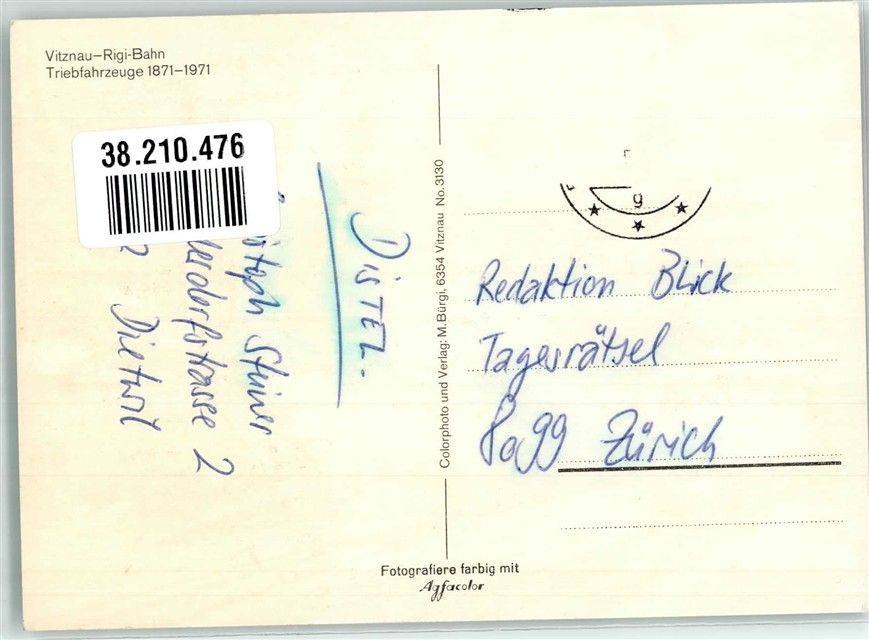 Vitznau–Rigi-Bahn
Triebfahrzeuge 1871–1971
38.210.476
DISTEL.
Steiner
2
Dietwil
Colorphoto und Verlag: M.Bürgi, 6354 Vitznau No.3130
g
Redaktion Blick
Tagesrätsel
8099 Zürich
Fotografiere farbig mit
Agfacolor